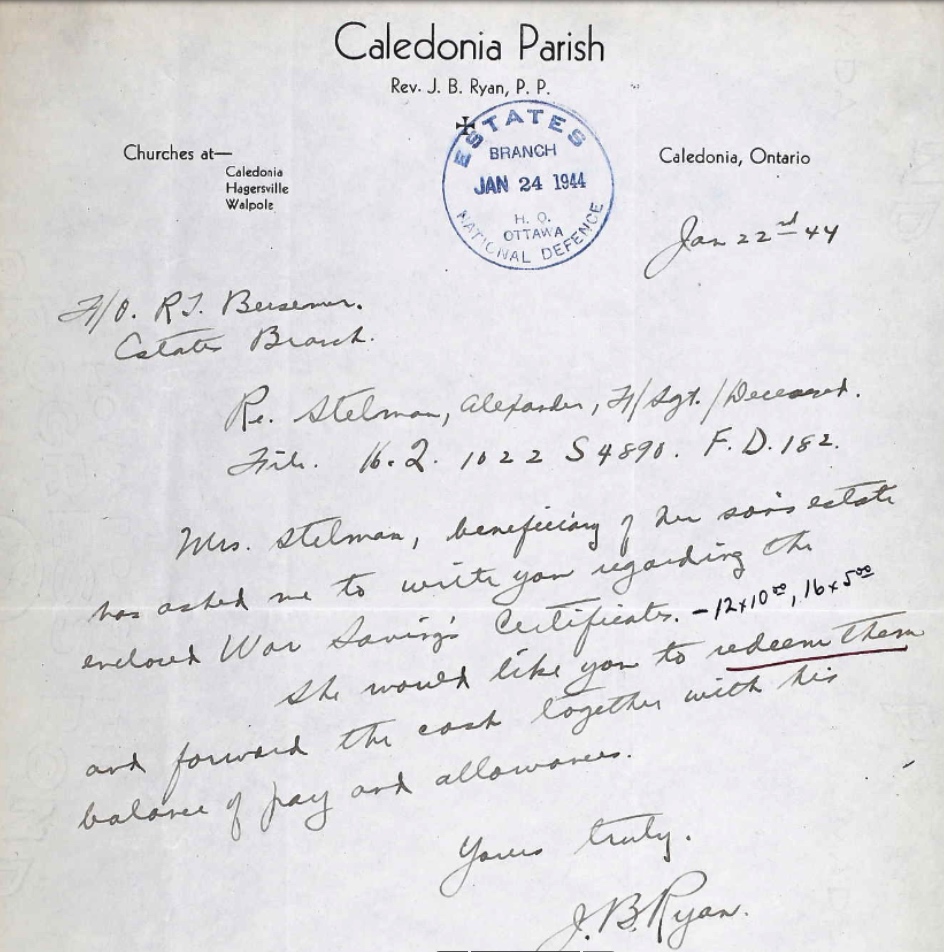 Caledonia Parish
Rev. J. B. Ryan, P. P.
Churches at—
Caledonia
Hagersville
Walpole
ESTATES
BRANCH
JAN 24 1944
H. Q.
OTTAWA
NATIONAL DEFENCE
Caledonia, Ontario
Jan 22nd 44
F/O. R.J.
Estates Branch.
Re. Stelman, Alexander, F/Sgt./Deceased.
File. 1022 S 4890. F.D. 182.
Mrs. Stelman, beneficiary of her son's estate
has asked me to write you regarding the
enclosed War Saving's Certificates. – 12x10⁰⁰, 16x5⁰⁰
She would like you to redeem them
and forward the cash together with his
balance of pay and allowances.
Yours truly.
J.B. Ryan.